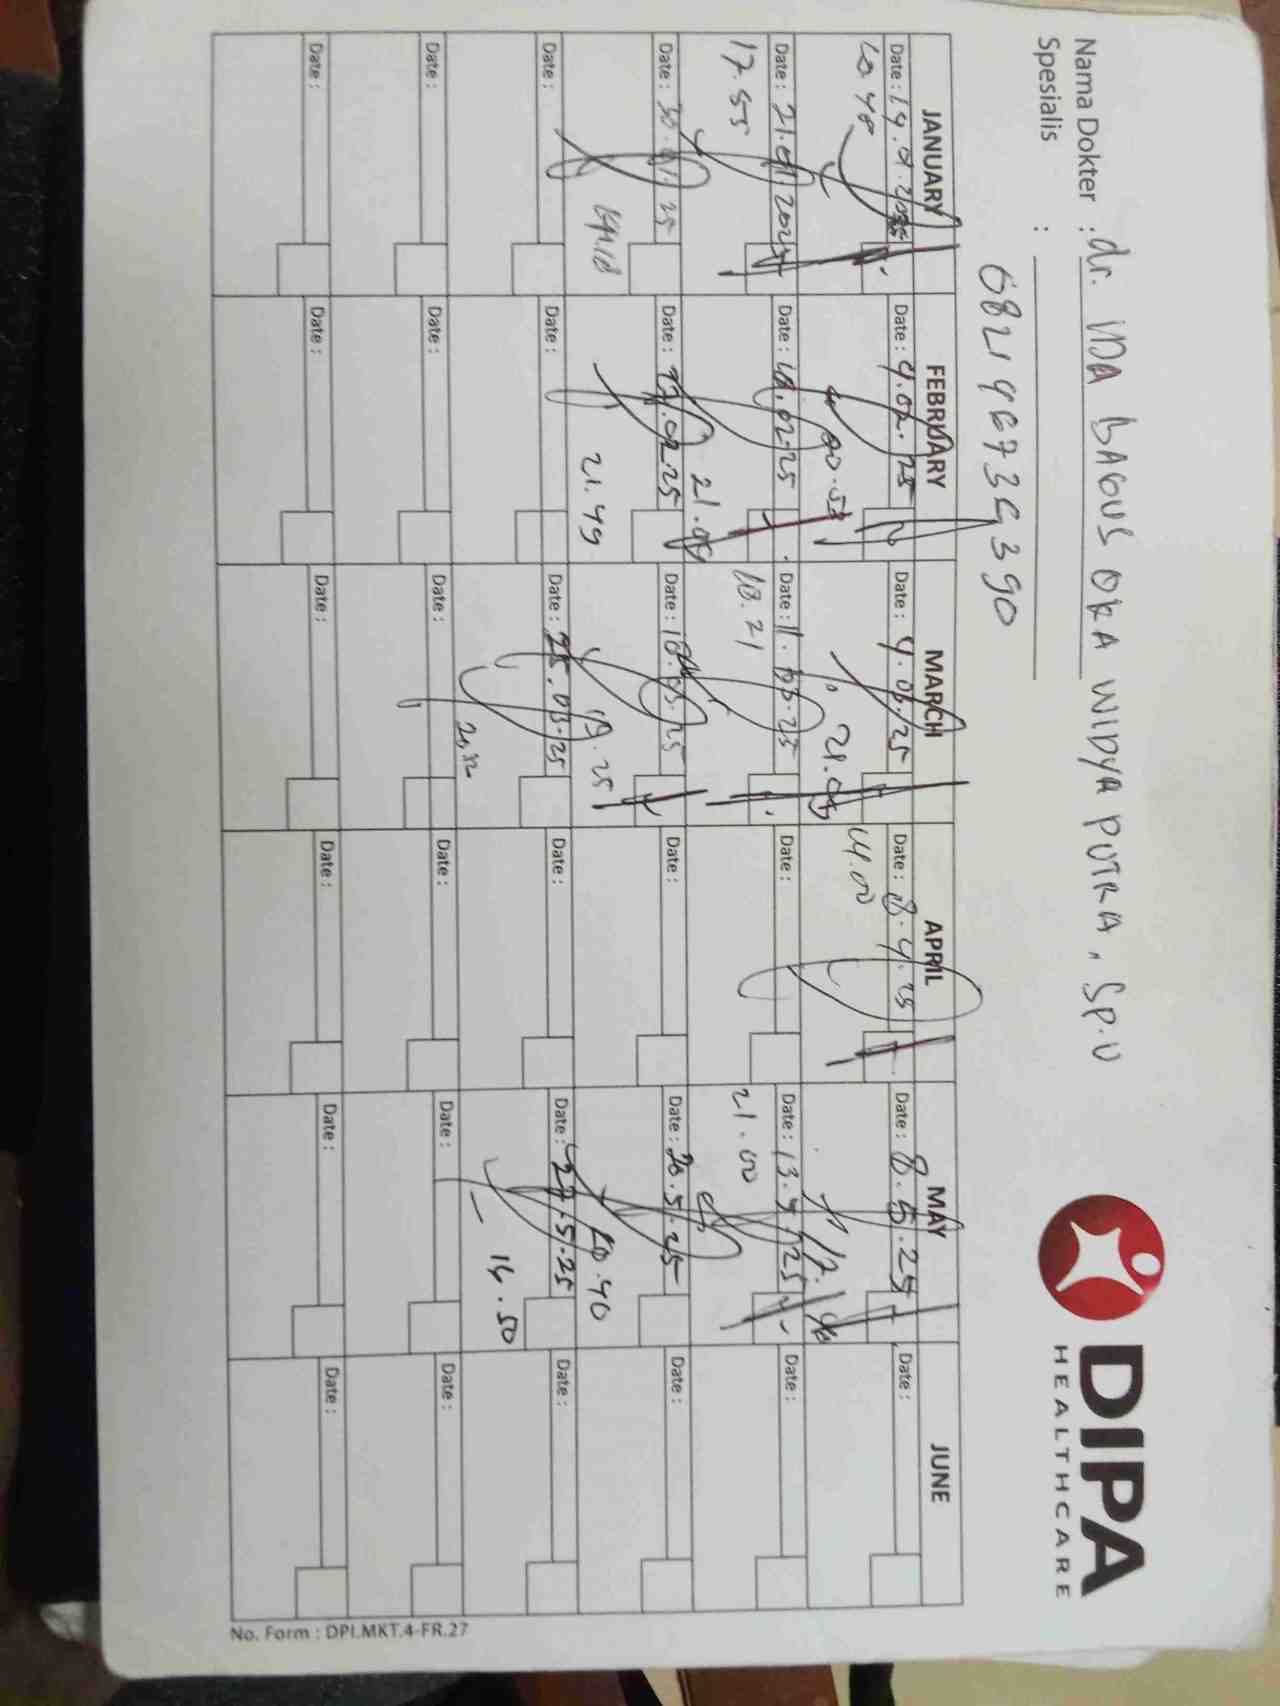 Nama Dokter : dr. IDA BAGUS OKA WIDYA PUTRA, Sp.U
Spesialis :
DIPA
HEALTHCARE
JANUARY FEBRUARY MARCH APRIL MAY JUNE
Date : Date : 4.02.25 Date : 4.03.25 Date : 8.4.25 Date : 8.5.25 Date :
21.05 14.00
Date : 21.01.2025 Date : 10.02.25 Date : 11.03.25 Date : Date : 13.5.25 Date :
17.55 21.05 18.21 21.00
Date : 30.01.25 Date : 17.02.25 Date : 18.03.25 Date : Date : 20.5.25 Date :
21.49 19.25
Date : Date : Date : 25.03.25 Date : Date : 27.5.25 Date :
20.32 16.50
Date : Date : Date : Date : Date : Date :
Date : Date : Date : Date : Date : Date :
No. Form : DPI.MKT.4-FR.27